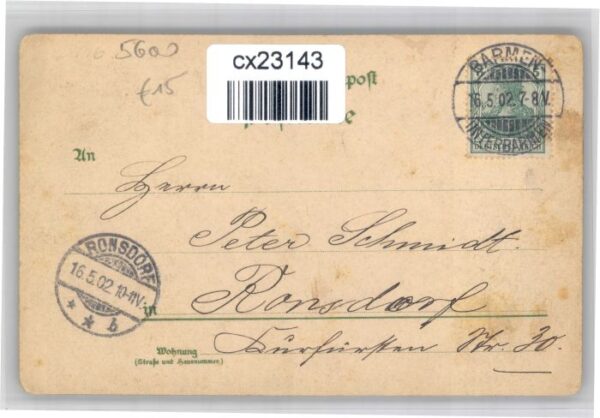 5600
£15
cx23143
post
BARMEN
16.5.02.7-8V.
UNTERBARMEN
An
Herrn
Peter Schmidt.
RONSDORF
16.5.02.10-11V.
* * b
in Ronsdorf
Wohnung
(Straße und Hausnummer.)
Kurfürsten Str. 30.